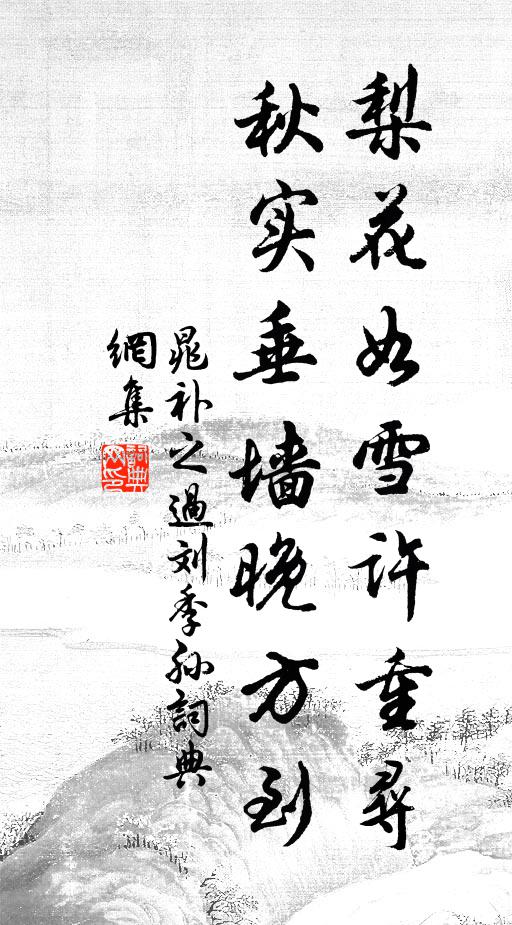 梨花如雪许重寻
秋实垂墙晚方到
晁补之過刘季孙詞典
網集
詞典网印